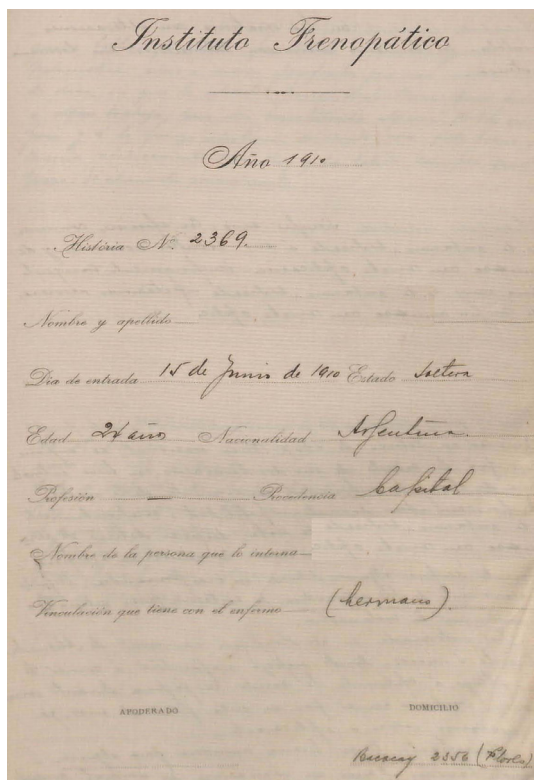 Instituto Frenopático
Año 1910
História Nº 2369.
Nombre y apellido
Dia de entrada 15 de Junio de 1910 Estado Soltera
Edad años Nacionalidad Argentina
Profesión — Procedencia Capital
Nombre de la persona que lo interna
Vinculación que tiene con el enfermo (hermano).
APODERADO DOMICILIO
2356 (Flores)